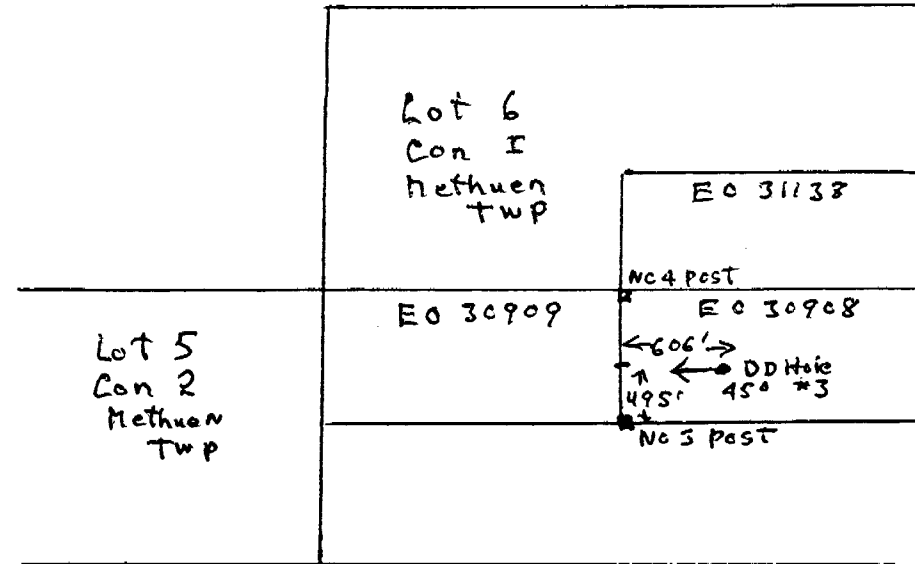 Lot 6
Con I
Methuen
Twp
EO 31138
No 4 post
EO 30909
EO 30908
Lot 5
Con 2
Methuen
Twp
606'
DD Hole
45° #3
495'
No 3 post